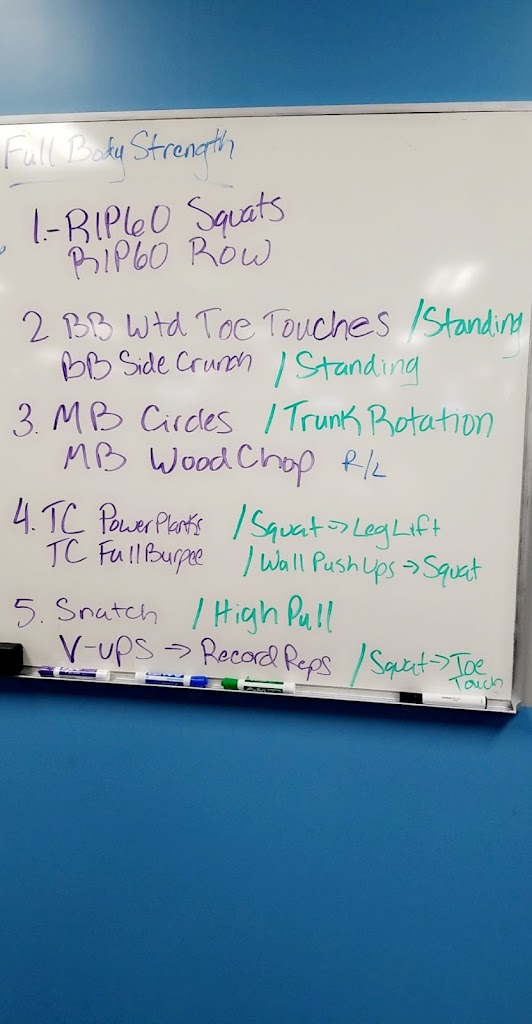 Full Body Strength
1.- RIP60 Squats
RIP60 Row
2 BB Wtd Toe Touches /Standing
BB Side Crunch /Standing
3. MB Circles /Trunk Rotation
MB Wood Chop R/L
4. TC Power Planks /Squat → Leg Lift
TC Full Burpee /Wall Push Ups → Squat
5. Snatch /High Pull
V-ups → Record Reps /Squat → Toe
Touch